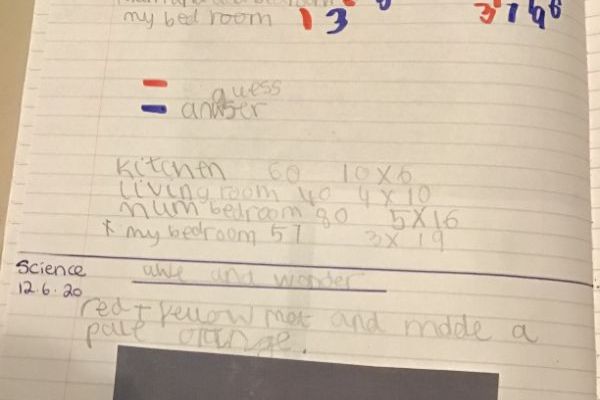 my bed room 13 3 19
guess
answer
kitchen 60 10x6
living room 40 4x10
mum bedroom 80 5x16
* my bedroom 57 3x 19
Science awe and wonder
12.6.20
red + yellow met and made a
pale orange.